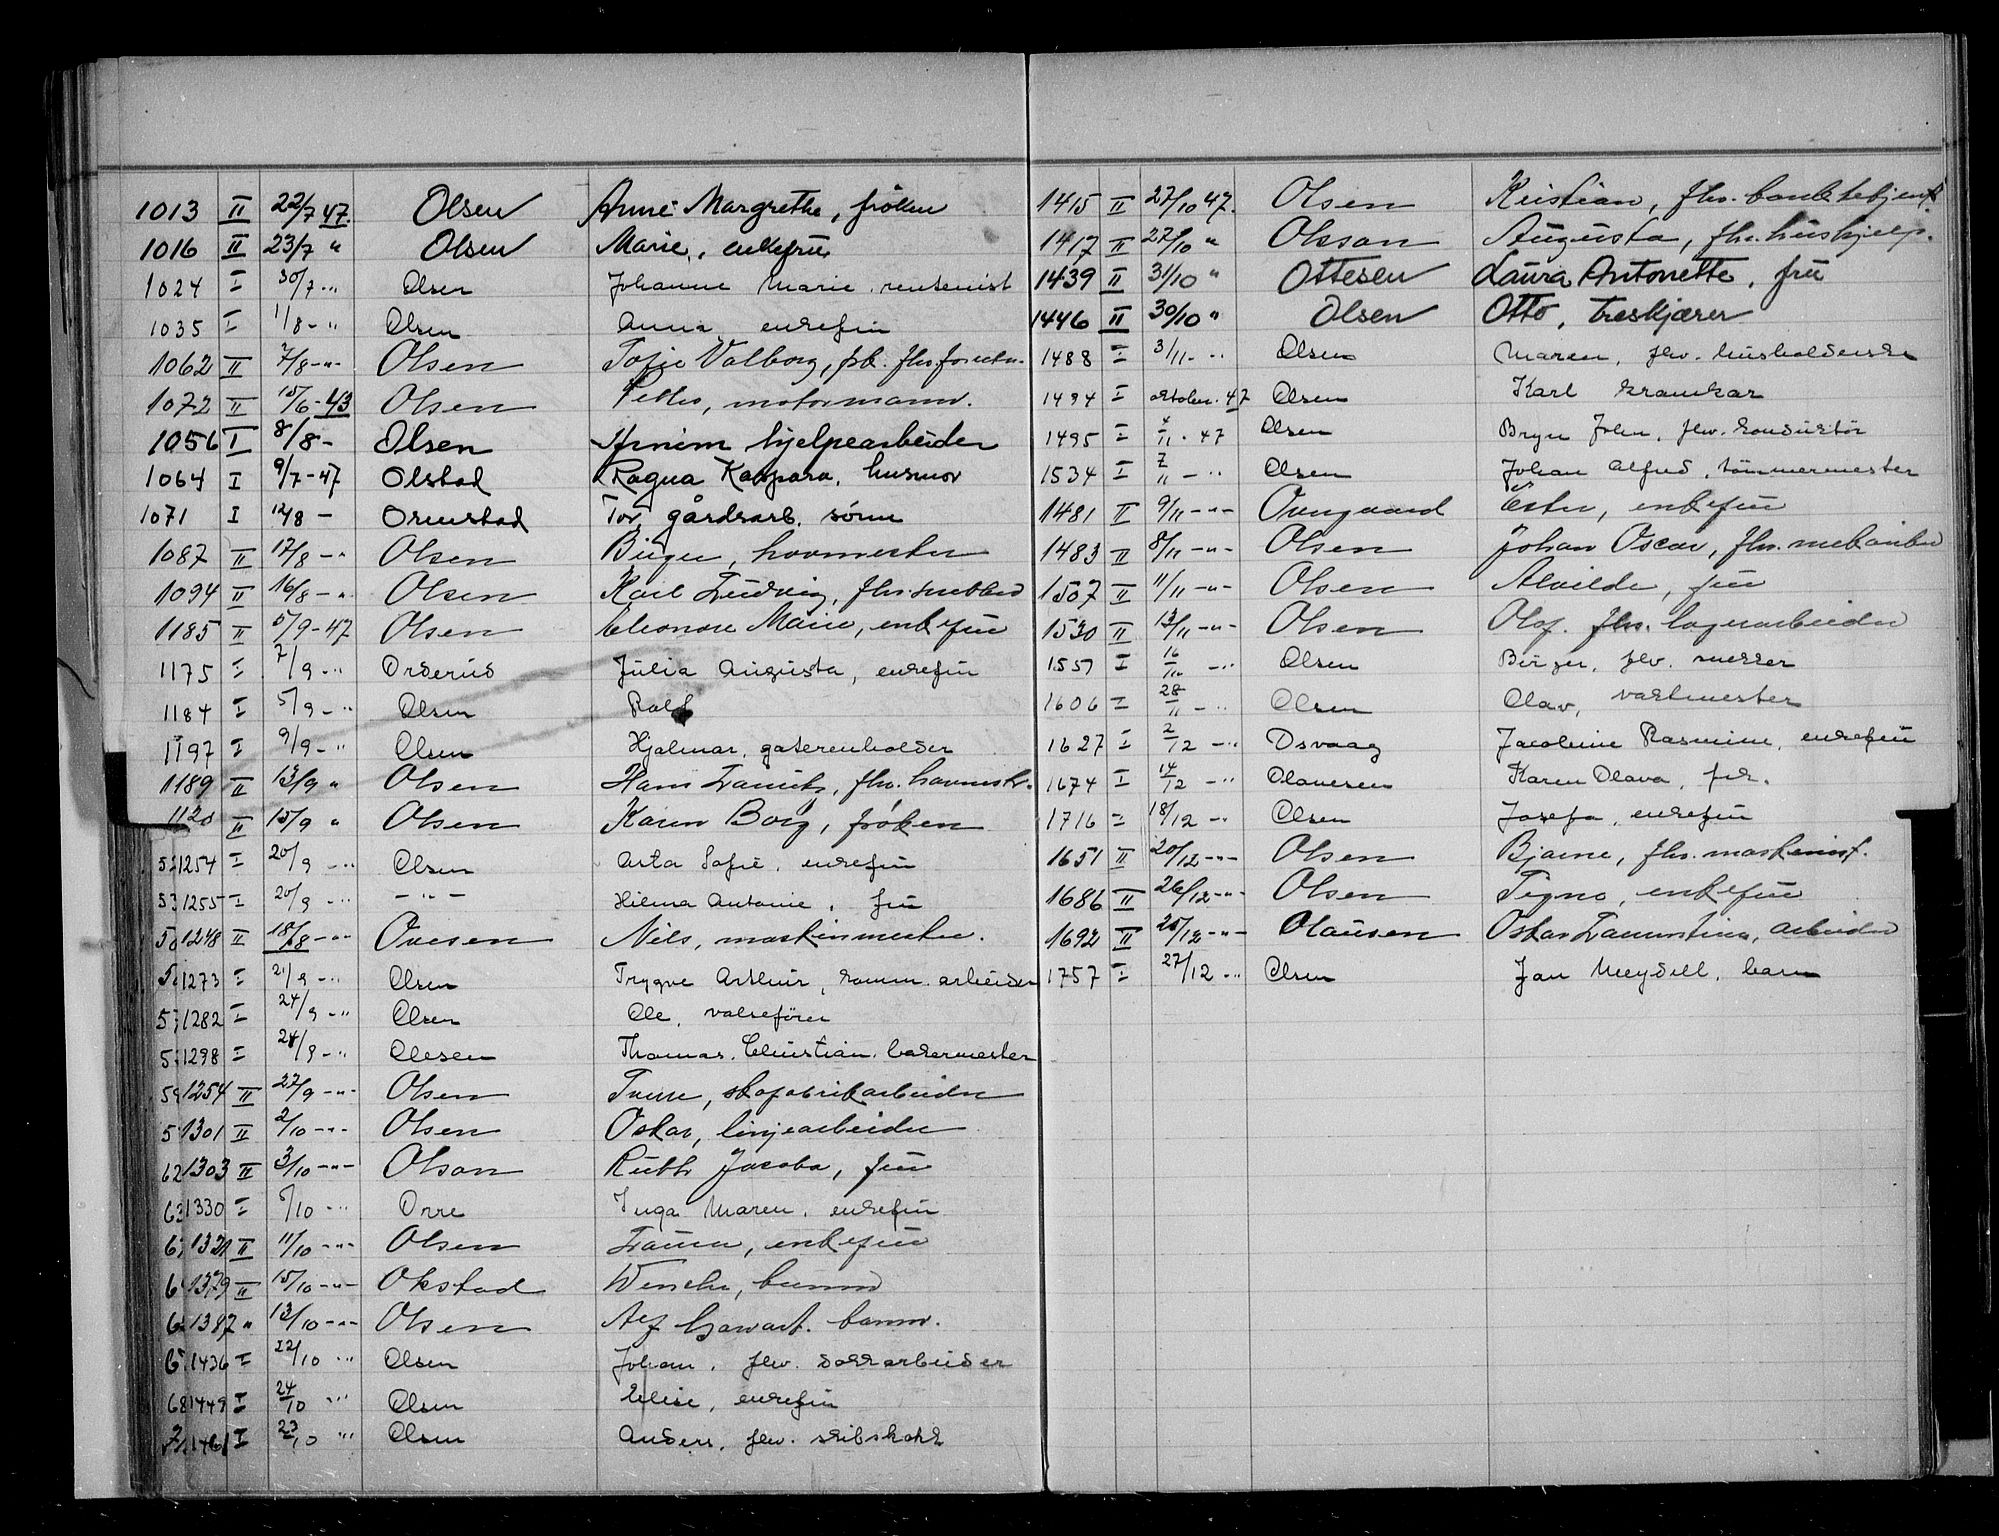 1013 II 22/7 47. Olsen Anne Margrethe, frøken
1016 II 23/7 " Olsen Marie, enkefru
1024 I 30/7 - " Olsen Johanne Marie, rentenist
1035 I 1/8 - " Olsen Anna enkefru
1062 II 7/8 - " - Olsen Valborg,
1072 II 15/6 - 43 Olsen Petter, motormann.
1056 I 8/8 - Olsen hjelpearbeider
1064 I 9/7 - 47 Olstad Ragna Kaspara, husmor
1071 I 12/8 - Ormstad Tov, gårdsarb. sønn
1087 II 17/8 - " Olsen Birger, hovmester
1094 II 16/8 - " Olsen Karl Ludvig, fhv.
1185 II 5/9 - 47 Olsen Eleonore Marie, enkefru
1175 I 7/9 - " Orderud Julia Augusta, enkefru
1184 I 5/9 - " Olsen Rolf
1197 I 9/9 - " Olsen Hjalmar,
1189 II 13/9 " Olsen Hans Lauritz, fhv.
1120 II 15/9 " Olsen Karen Borg, frøken
1254 I 20/9 - " Olsen Asta Sofie, enkefru
1255 I 20/9 - " - " - Hilma Antonie, fru
1248 II 18/8 - " - Ovesen Nils, maskinmester.
1273 I 21/9 - " Olsen Trygve Arthur, komm. arbeider
1282 I 24/9 - " Olsen Ole, valsefører
1298 I 24/9 - " Olesen Thomas Christian, bakermester
1254 II 27/9 - " - Olsen skofabrikarbeider
1301 II 2/10 - " - Olsen Oskar, linjearbeider
1303 II 3/10 - " - Olson Ruth Jacoba, fru
1330 I /10 - " Orre Inga Maren, enkefru
II 11/10 - " - Olsen Laura, enkefru
1379 II 15/10 - " - Okstad Wenche, barn
1387 " 13/10 - " - Olsen Alf barn.
1436 I 22/10 " Olsen Johan, fhv. dokkarbeider
1449 I 24/10 " Olsen Elise, enkefru
1461 I 23/10 " Olsen Anders, fhv.
1415 II 27/10 47. Olsen Kristian, fhv. bankbetjent.
1417 II 27/10 " Olsson Augusta, fhv. hushjelp.
1439 II 31/10 " Ottesen Laura Antonette, fru
1446 II 30/10 " Olsen Otto, treskjærer
1488 I 3/11 - " Olsen Maren, fhv. husholderske
1494 I oktober. 47 Olsen Karl
1495 I 4/11 - 47 Olsen John, fhv. konduktør
1534 I 7/11 - " Olsen Johan Alfred, tømmermester
1481 II 9/11 - " - Overgaard Ester, enkefru
1483 II 8/11 - " - Olsen Johan Oscar, fhv. mekaniker
1507 II 11/11 - " - Olsen Alvilde, fru
1530 II 13/11 - " - Olsen Olof. fhv. lagerarbeider
1557 I 16/ - " Olsen Birger, fhv. snekker
1606 I 28/11 - " Olsen Olav, vaktmester
1627 I 2/12 - " Osvaag Jacobine Rasmine, enkefru
1674 I 14/12 - " Olavesen Karen Olava,
1716 I 18/12 - " Olsen Josefa, enkefru
1651 II 20/12 - " - Olsen Bjarne, fhv. maskinist.
1686 II 26/12 - " - Olsen Signe, enkefru
1692 II 25/12 - " - Olausen Oskar arbeider
1757 I 27/12 - " Olsen Jan Meydell, barn